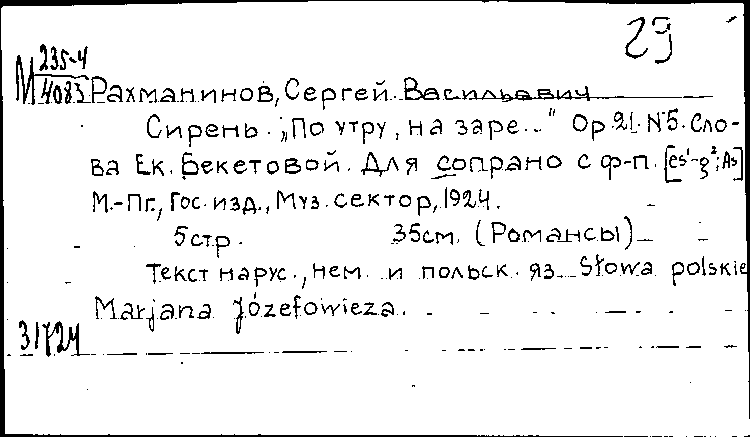 29
М 235-4
4083 Рахманинов, Сергей Васильевич
Сирень. „По утру, на заре..." Ор. 21. №5. Сло-
ва Ек. Бекетовой. Для сопрано с ф-п. [es¹-g²; As]
М.-Пг., Гос. изд., Муз. сектор, 1924.
5 стр. 35 см. (Романсы)
Текст на рус., нем. и польск. яз. Słowa polskie
Marjana Józefowieza.
31724